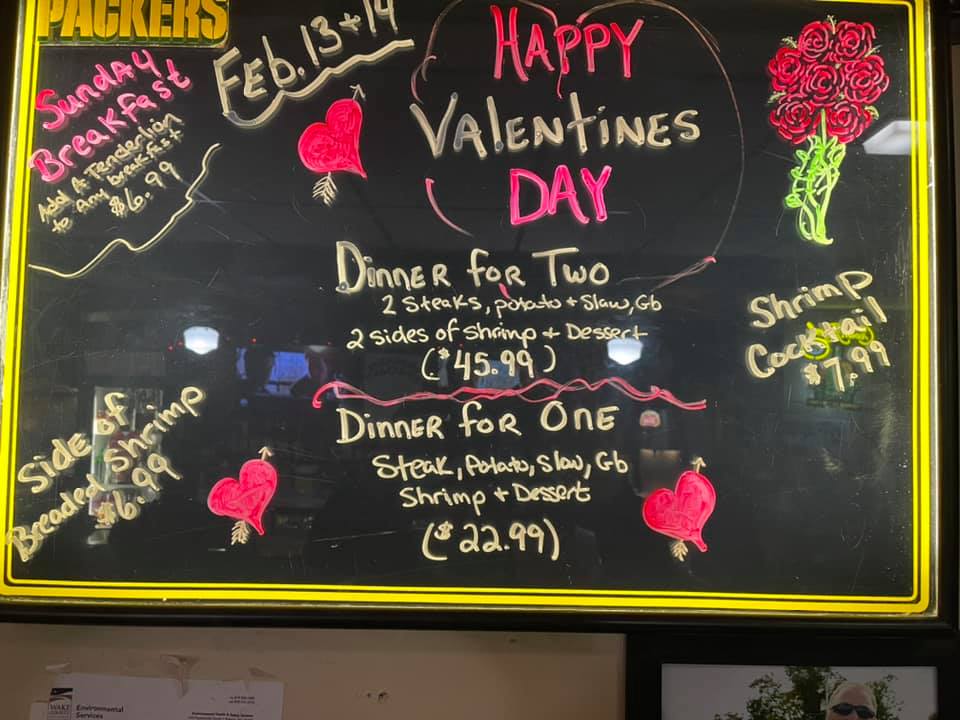 PACKERS
Sunday
Breakfast
Add A Tenderlion
to Any breakfast
$6.99
Feb. 13 + 14
HAPPY
VALENTINES
DAY
DINNER for TWO
2 Steaks, potato + Slaw, Gb
2 sides of Shrimp + Dessert
($45.99)
DINNER for ONE
Steak, Potato, Slaw, Gb
Shrimp + Dessert
($22.99)
Shrimp
Cocktail
$7.99
Side of
Breaded Shrimp
$6.99
WAKE
Environmental
Services